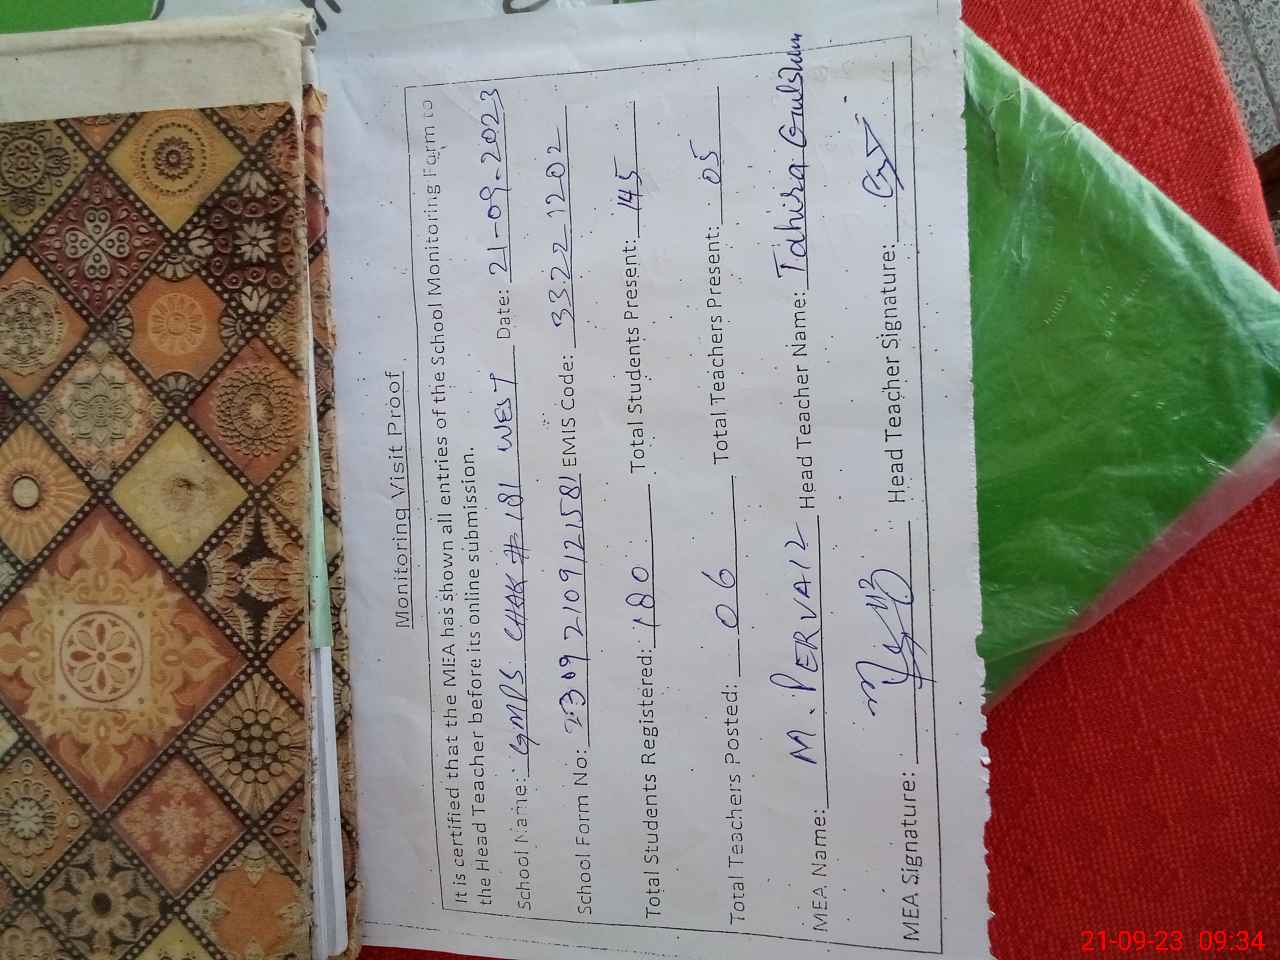 Monitoring Visit Proof
It is certified that the MEA has shown all entries of the School Monitoring Form to
the Head Teacher before its online submission.
School Name: GMPS CHAK # 181 WEST Date: 21-09-2023
School Form No: 23092109121581 EMIS Code: 33221202
Total Students Registered: 180 Total Students Present: 145
Total Teachers Posted: 06 Total Teachers Present: 05
MEA Name: M. PERVAIZ Head Teacher Name: Tahira Gulshan
MEA Signature: Head Teacher Signature:
21-09-23 09:34